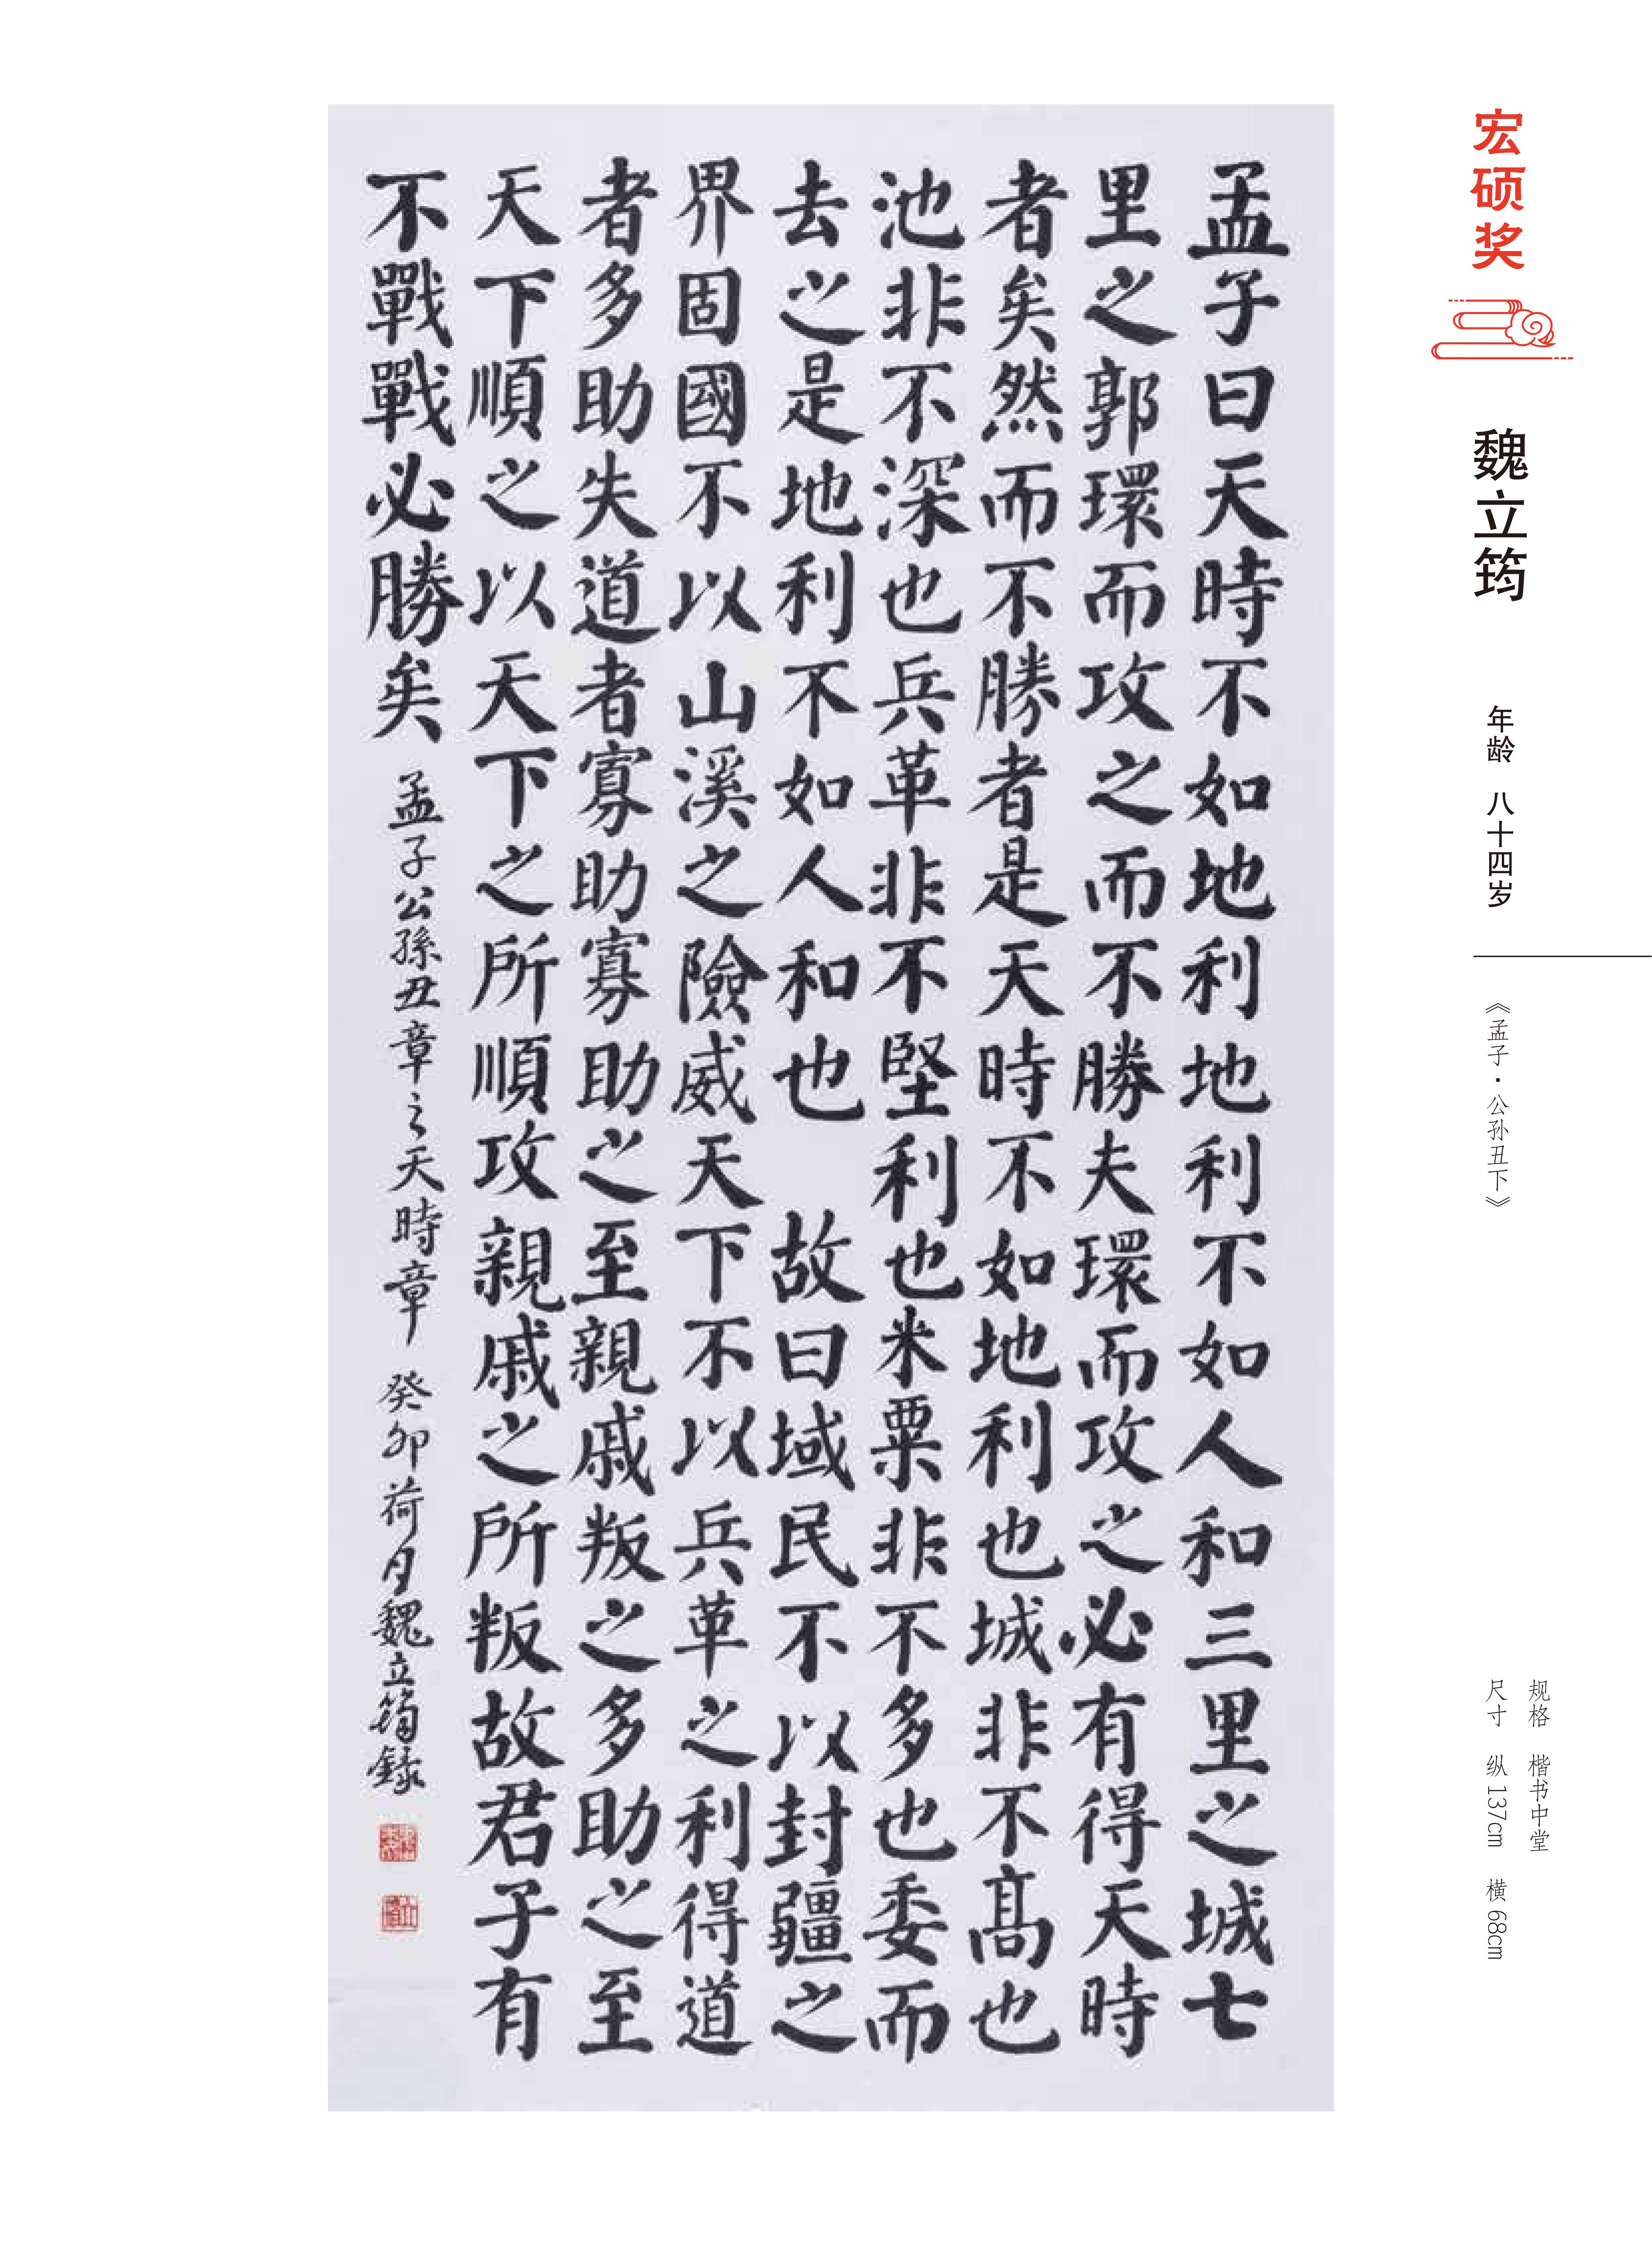 宏硕奖
魏立筠
年龄 八十四岁
《孟子·公孙丑下》
规格 楷书中堂
尺寸 纵137cm 横68cm
孟子曰天時不如地利地利不如人和三里之城七
里之郭環而攻之而不勝夫環而攻之必有得天時
者矣然而不勝者是天時不如地利也城非不髙也
池非不深也兵革非不堅利也米粟非不多也委而
去之是地利不如人和也 故曰域民不以封疆之
界固國不以山溪之險威天下不以兵革之利得道
者多助失道者寡助寡助之至親戚叛之多助之至
天下順之以天下之所順攻親戚之所叛故君子有
不戰戰必勝矣 孟子公孫丑章之天時章 癸卯荷月魏立筠錄